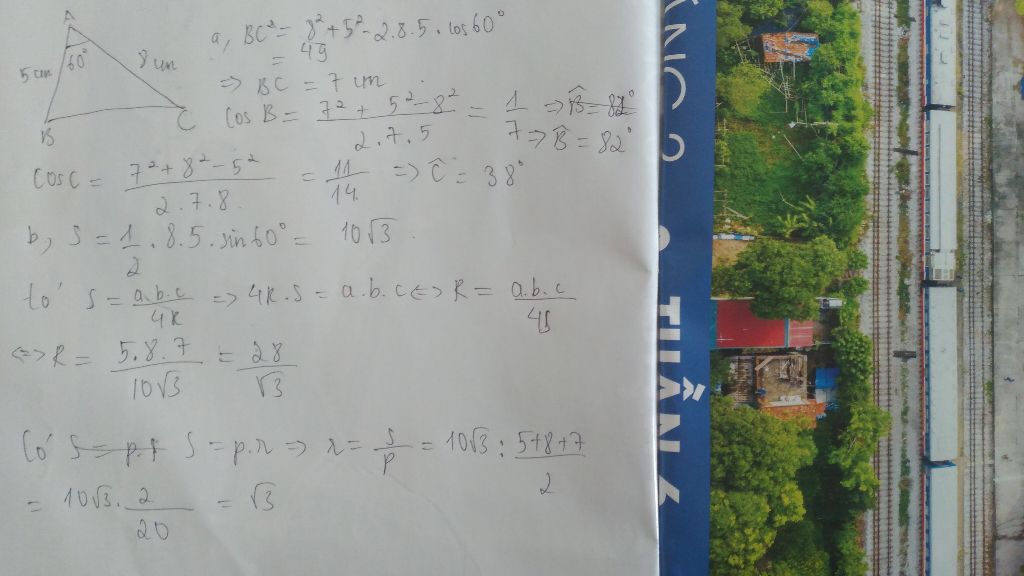 A
5 cm
60°
8 cm
B
C
a, BC² = 8² + 5² - 2.8.5.cos60°
= 49
=> BC = 7 cm
cos B = \frac{7² + 5² - 8²}{2.7.5} = \frac{1}{7} => B̂ = 82°
=> B̂ = 82°
cos C = \frac{7² + 8² - 5²}{2.7.8} = \frac{11}{14} => Ĉ = 38°
b, S = \frac{1}{2}.8.5.sin60° = 10√3
Có S = \frac{a.b.c}{4R} => 4R.S = a.b.c <=> R = \frac{a.b.c}{4S}
<=> R = \frac{5.8.7}{10√3} = \frac{28}{√3}
Có S = p.r S = p.r => r = \frac{S}{p} = 10√3 : \frac{5+8+7}{2}
= 10√3.\frac{2}{20} = √3
THẦN 6